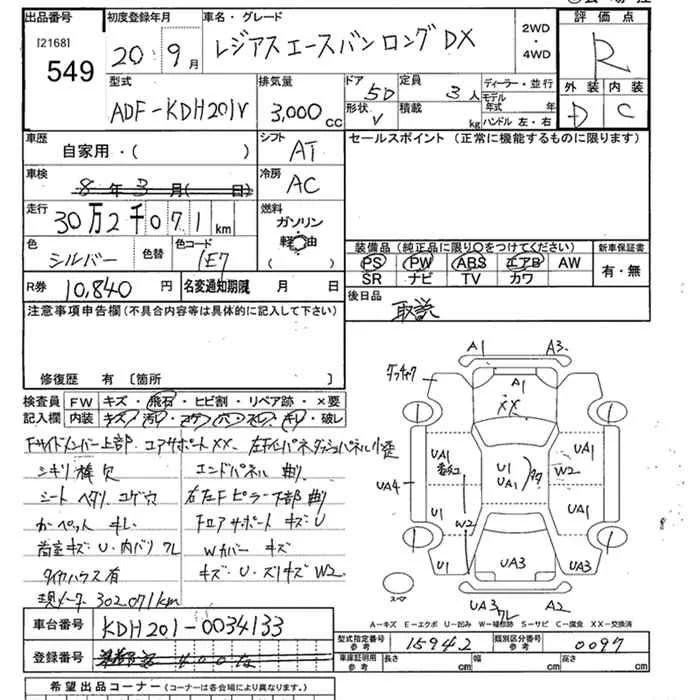 出品番号
[2168]
549
初度登録年月
20年9月
車名・グレード
レジアスエースバンロングDX
2WD
・
4WD
評価点
R
外装 内装
D C
型式
ADF-KDH201V
排気量
3,000cc
ドア 5D
形状 V
定員 3人
積載 kg
ディーラー・並行
モデル年式 年
ハンドル 左・右
車歴
自家用・( )
シフト AT
車検
8年3月( 日)
冷房 AC
走行
30万2千071km
燃料
ガソリン
軽油
( )
色 シルバー
色替
色コード 1E7
R券 10,840円
名変通知期限 月 日
セールスポイント(正常に機能するものに限ります)
装備品(純正品に限り○をつけてください)
PS PW ABS エアB AW
SR ナビ TV カワ
新車保証書
有・無
後日品
取説
注意事項申告欄(不具合内容等は具体的に記入して下さい)
修復歴 有 〔箇所 〕
検査員記入欄
FW キズ・飛石・ヒビ割・リペア跡・×要
内装 キズ・汚レ・コゲ・穴・スレ・キレ・破レ
Fサイドメンバー上部、コアサポートXX、
シキリ棒欠
シートヘタリ、コゲ穴
カーペット キレ
荷室キズ・U・内バリワレ
タイヤハウス有
現メータ302,071km
エンドパネル曲り
右左Fピラー下部曲り
Fロアサポート キズ・U
Wカバー キズ
キズ・U・スリキズW2
A1
A3
A1
XX
1
1
UA1
UA1
U1
UA1
W2
UA4
U1
W2
UA1
1
1
U1
UA3
UA3
UA3
ワレ
A2
スペア
A-キズ E-エクボ U-凹み W-補修跡 S-サビ C-腐食 XX-交換済
車台番号 KDH201-0034133
登録番号
型式指定番号参考 15942
類別区分番号参考 0097
車庫証明用参考 長さ cm 幅 cm 高さ cm
希望出品コーナー(コーナーは各会場により異なります。)